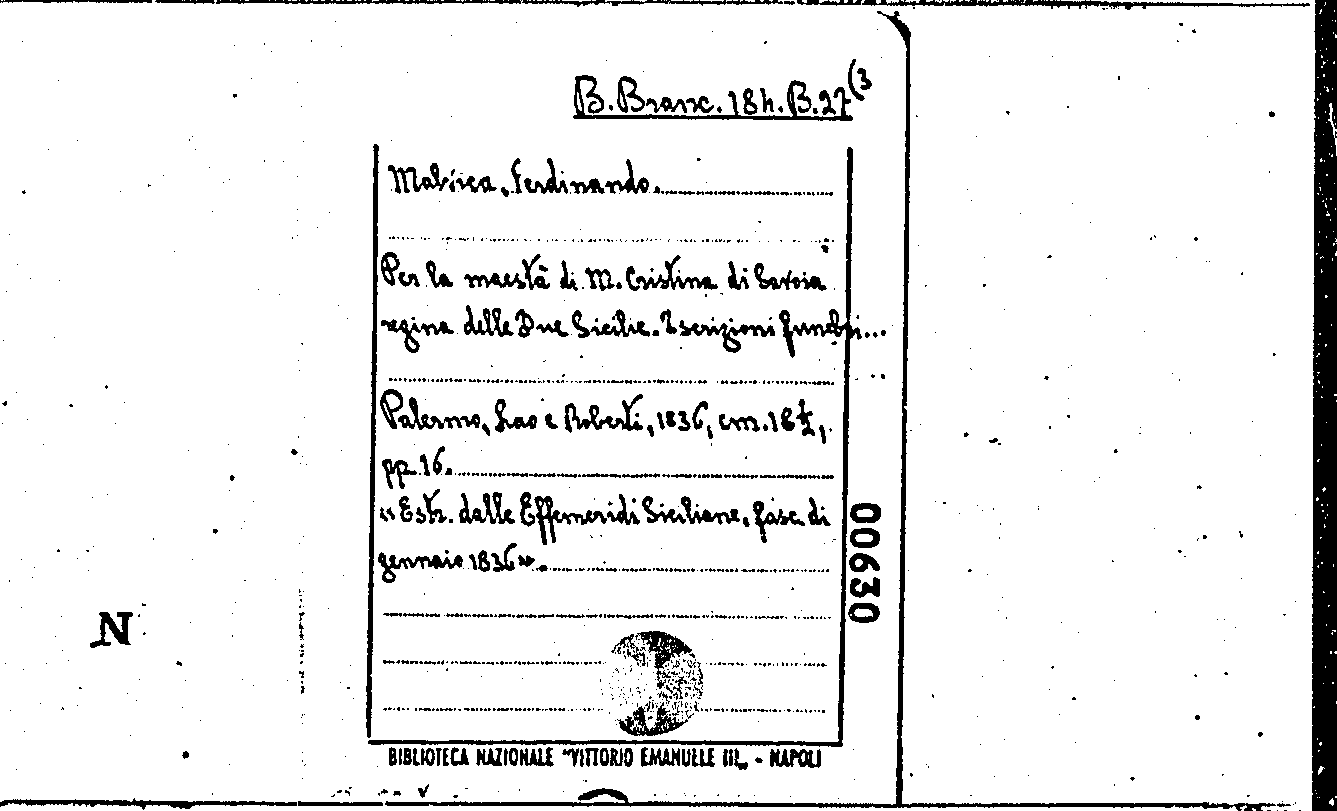 B. Branc. 18h. B. 27(3
Malvica, Ferdinando.
Per la maestà di M. Cristina di Savoia
regina delle Due Sicilie. Iscrizioni funebri...
Palermo, Lao e Roberti, 1836, cm. 18½,
pp. 16.
«Estr. dalle Effemeridi Siciliane, fasc. di
gennaio 1836».
00630
N
BIBLIOTECA NAZIONALE "VITTORIO EMANUELE III„ - NAPOLI